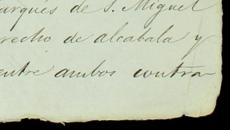 arqués de S. Miguel
recho de alcabala y
entre ambos contra-